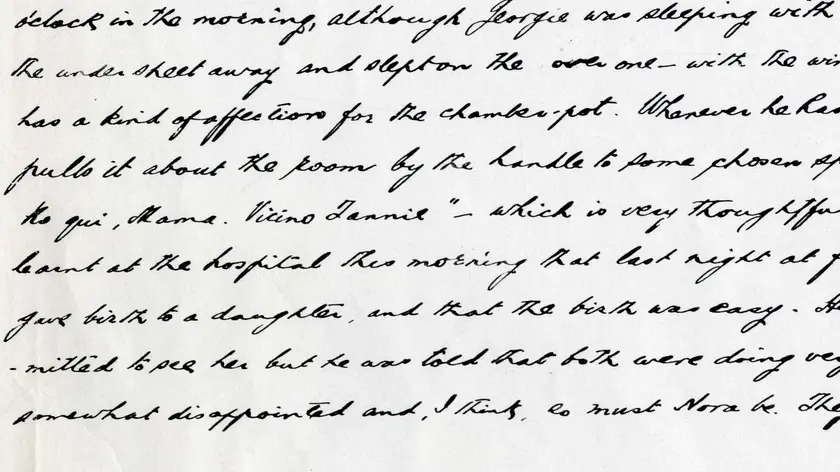 o'clock in the morning, although Georgie was sleeping with
the under sheet away and slept on the over one – with the win
has a kind of affection for the chamber-pot. Whenever he has
pulls it about the room by the handle to some chosen sp
qui, Mama. Vicino Zannie" – which is very thoughtfu
learnt at the hospital this morning that last night at
gave birth to a daughter, and that the birth was easy. He
-mitted to see her but he was told that both were doing very
somewhat disappointed and, I think, so must Nora be. The